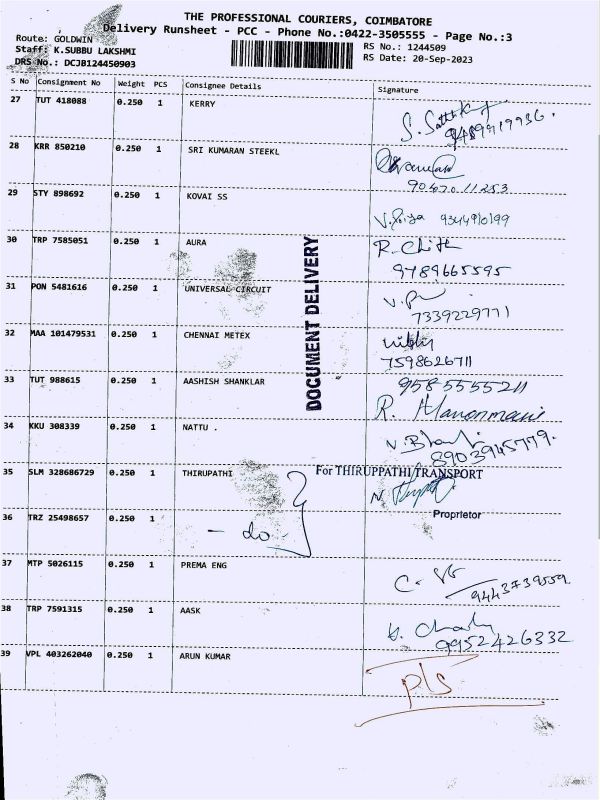 THE PROFESSIONAL COURIERS, COIMBATORE
Delivery Runsheet - PCC - Phone No.:0422-3505555 - Page No.:3
Route: GOLDWIN
Staff: K.SUBBU LAKSHMI
DRS No.: DCJB124450903
RS No.: 1244509
RS Date: 20-Sep-2023
S No Consignment No Weight PCS Consignee Details Signature
27 TUT 418088 0.250 1 KERRY
28 KRR 850210 0.250 1 SRI KUMARAN STEEKL
29 STY 898692 0.250 1 KOVAI SS
30 TRP 7585051 0.250 1 AURA R. Chith
9789665595
31 PON 5481616 0.250 1 UNIVERSAL CIRCUIT
7339229771
32 MAA 101479531 0.250 1 CHENNAI METEX
7598626711
33 TUT 988615 0.250 1 AASHISH SHANKLAR 9585555211
R. Manonmani
34 KKU 308339 0.250 1 NATTU .
8903945779.
35 SLM 328686729 0.250 1 THIRUPATHI For THIRUPPATHI TRANSPORT
Proprietor
36 TRZ 25498657 0.250 1 - do -
37 MTP 5026115 0.250 1 PREMA ENG
9443739559
38 TRP 7591315 0.250 1 AASK
9952426332
39 VPL 403262040 0.250 1 ARUN KUMAR
DOCUMENT DELIVERY